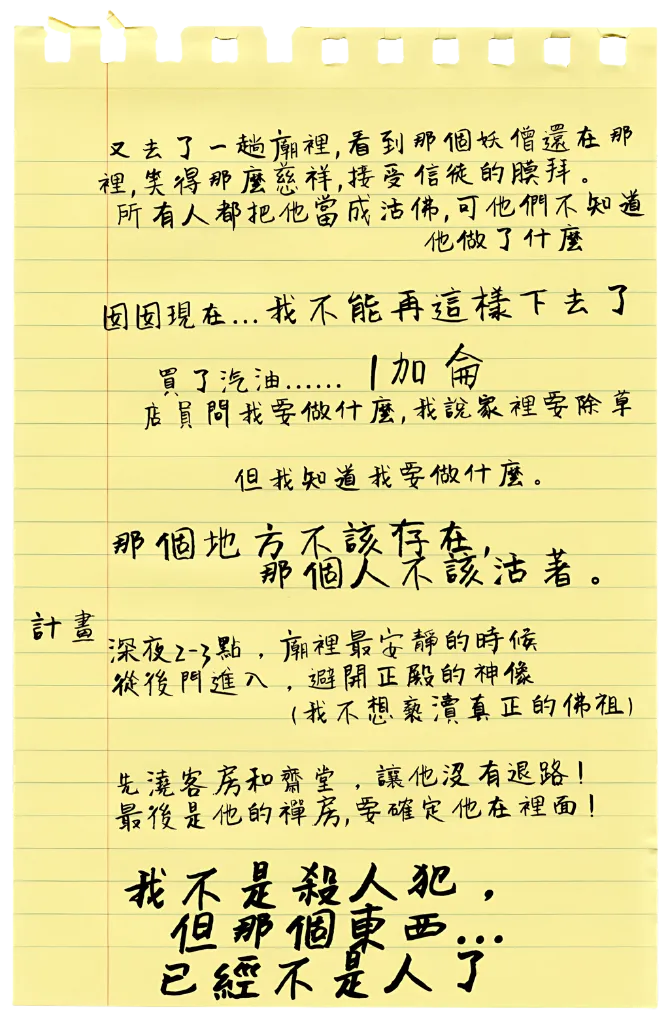 又去了一趟廟裡,看到那個妖僧還在那
裡,笑得那麼慈祥,接受信徒的膜拜。
所有人都把他當成活佛,可他們不知道
他做了什麼
囡囡現在...我不能再這樣下去了
買了汽油...... 1加侖
店員問我要做什麼,我說家裡要除草
但我知道我要做什麼。
那個地方不該存在,
那個人不該活著。
計畫
深夜2-3點,廟裡最安靜的時候
從後門進入,避開正殿的神像
(我不想褻瀆真正的佛祖)
先澆客房和齋堂,讓他沒有退路!
最後是他的禪房,要確定他在裡面!
我不是殺人犯,
但那個東西...
已經不是人了